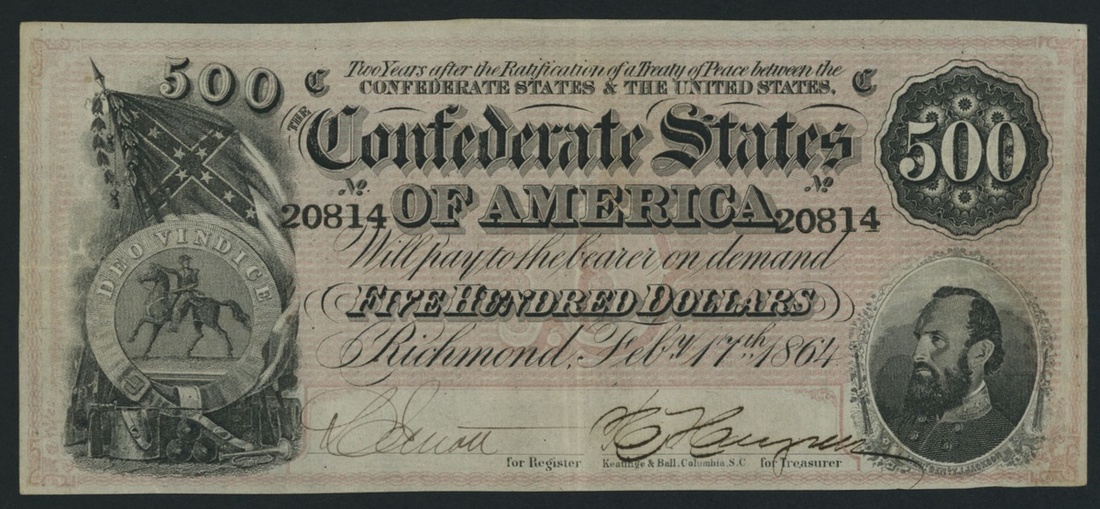 500 C Two Years after the Ratification of a Treaty of Peace between the C
CONFEDERATE STATES & THE UNITED STATES,
THE Confederate States 500
No. No.
20814 OF AMERICA 20814
DEO VINDICE
Will pay to the bearer on demand
FIVE HUNDRED DOLLARS
Richmond, Feby. 17th. 1864
for Register Keatinge & Ball, Columbia, S.C for Treasurer